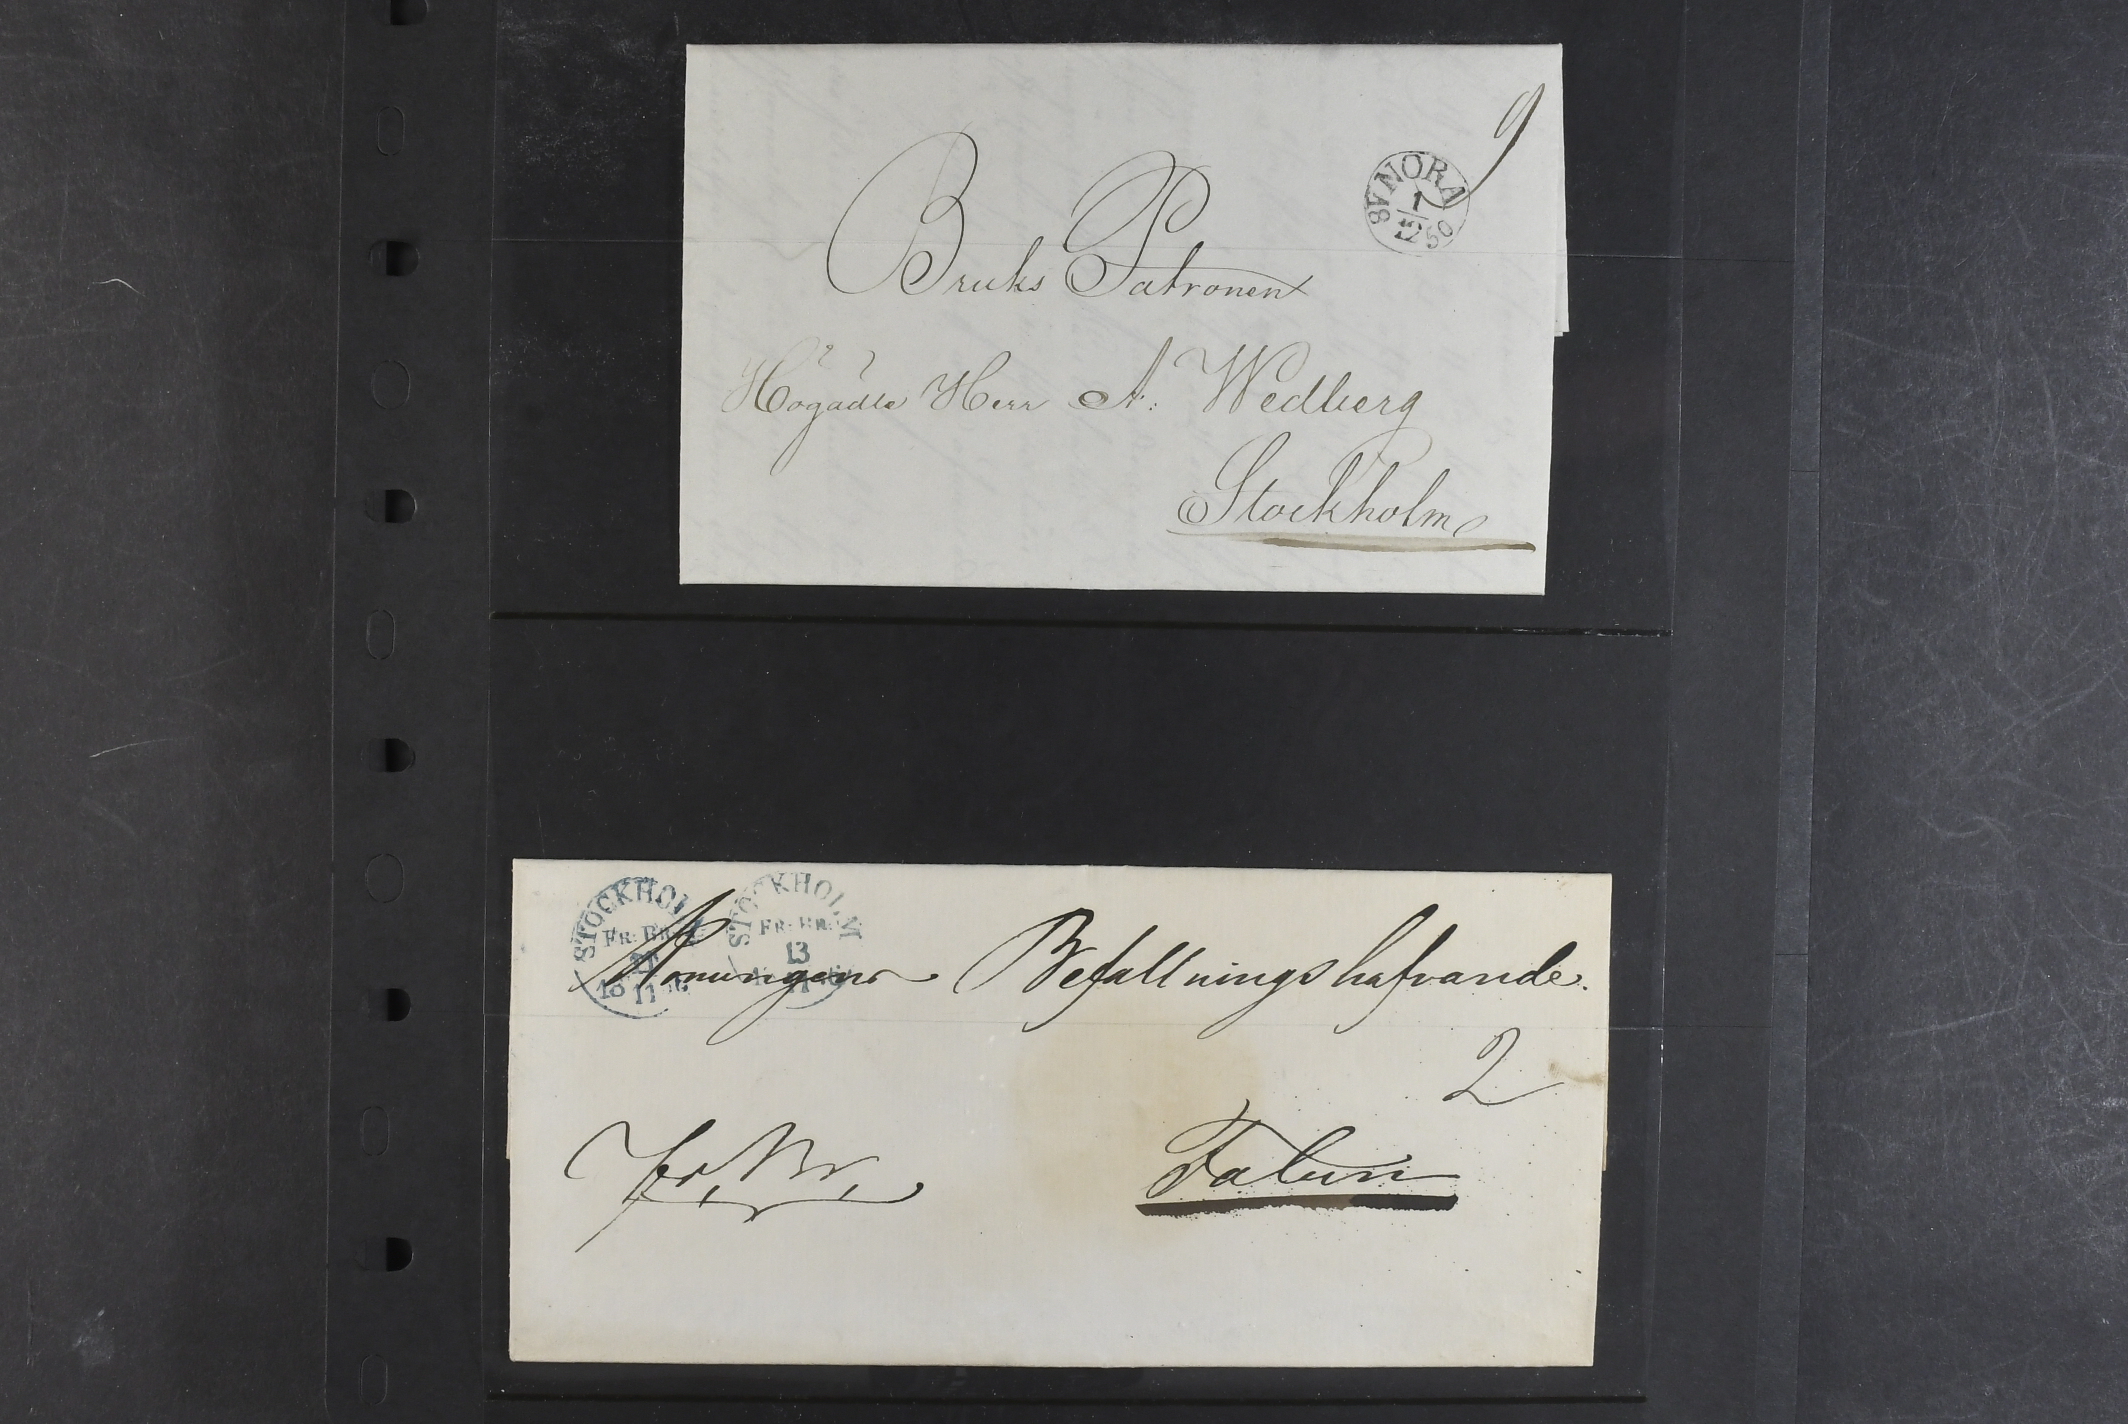 9
NORA
1
12
18 50
Bruks Patronen
Högädle Herr A. Wedberg
Stockholm
STOCKHOLM
FR: BR:
18 11
STOCKHOLM
FR: BR:
13
11
Konungens Befallningshafvande.
2
fr. Br.
Falun